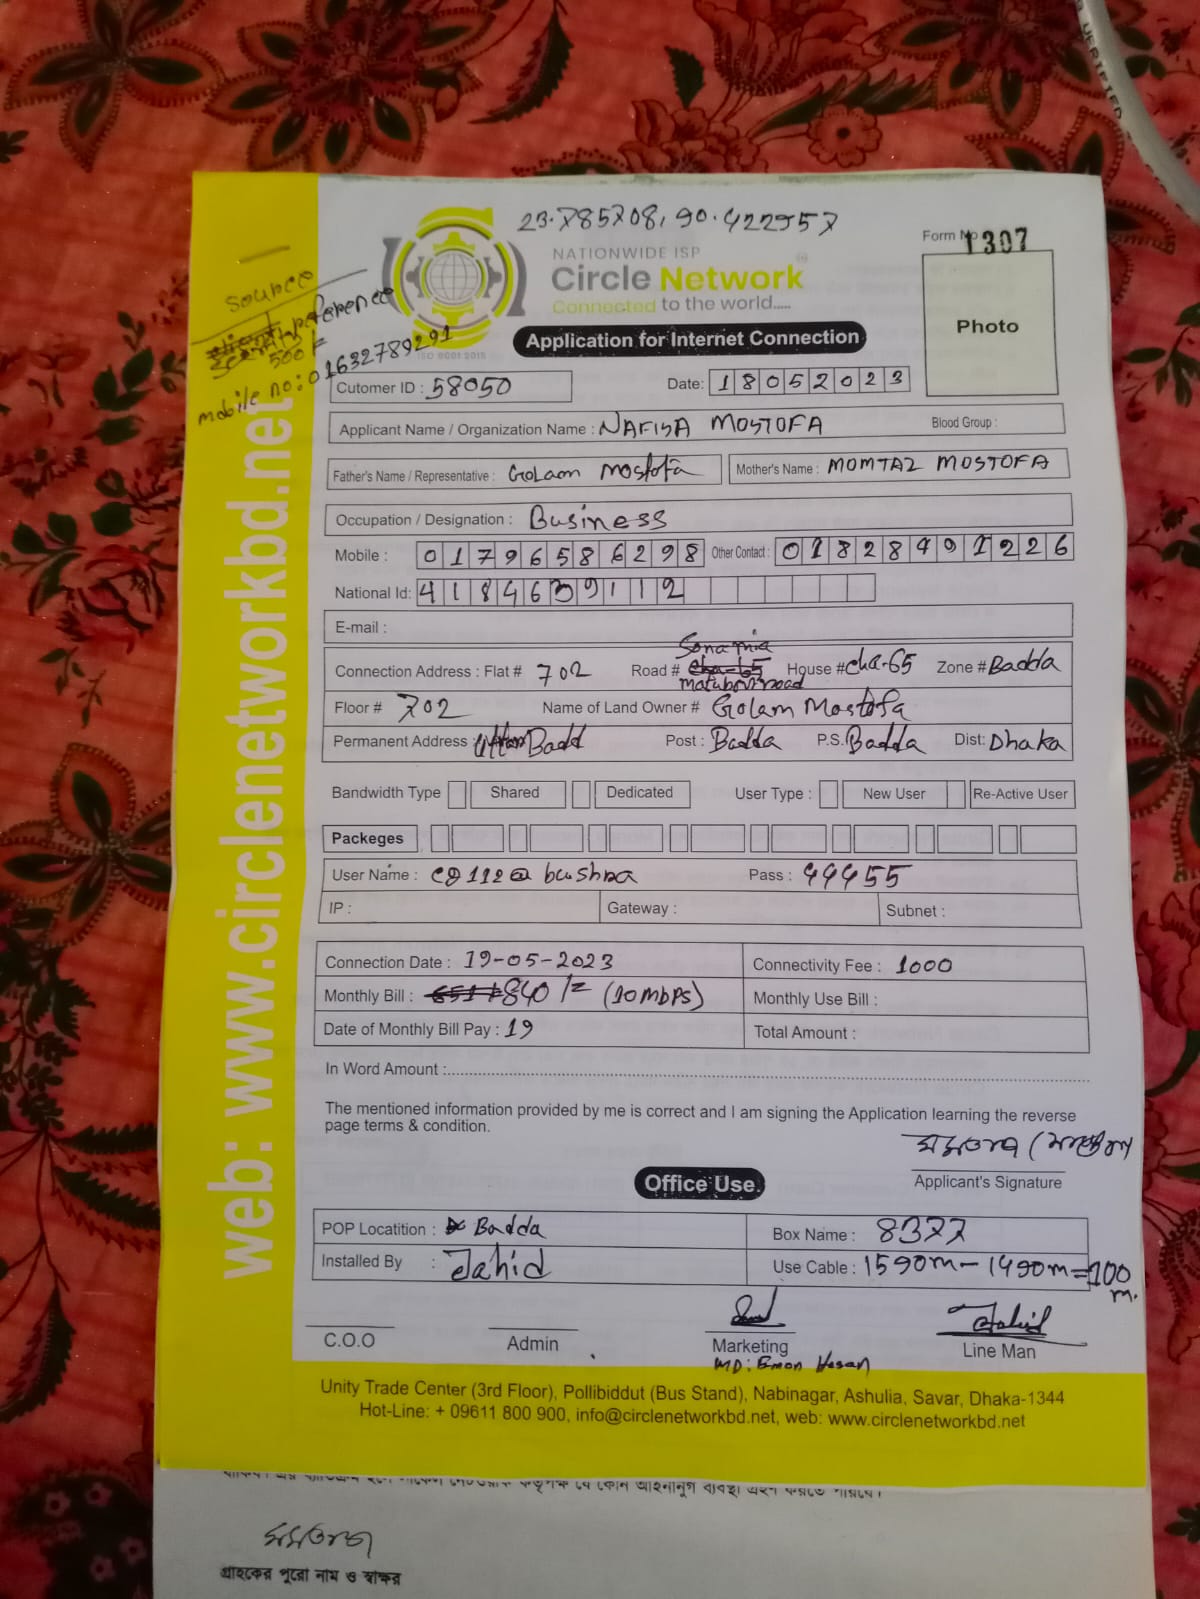 23.785708, 90.422957
NATIONWIDE ISP
Circle Network
Connected to the world.....
ISO 9001:2015
Form No 1307
Photo
Source
reference
500/-
mobile no: 01632789291
Application for Internet Connection
Cutomer ID : 58050 Date: 18052023
Applicant Name / Organization Name : NAFISA MOSTOFA Blood Group :
Father's Name / Representative : Golam Mostofa Mother's Name : MOMTAZ MOSTOFA
Occupation / Designation : Business
Mobile : 01796586298 Other Contact : 01828491226
National Id: 4184639112
E-mail :
Connection Address : Flat # 702 Road # Sona mia matubor road House # cha-65 Zone # Badda
Floor # 702 Name of Land Owner # Golam Mostofa
Permanent Address : Uttar Badd Post : Badda P.S. Badda Dist: Dhaka
Bandwidth Type Shared Dedicated User Type : New User Re-Active User
Packeges
User Name : CD112@bushra Pass : 44455
IP : Gateway : Subnet :
Connection Date : 19-05-2023 Connectivity Fee : 1000
Monthly Bill : 840/= (10Mbps) Monthly Use Bill :
Date of Monthly Bill Pay : 19 Total Amount :
In Word Amount :
The mentioned information provided by me is correct and I am signing the Application learning the reverse
page terms & condition.
মমতাজ
Applicant's Signature
Office Use
POP Locatition : Badda Box Name : 8377
Installed By : Jahid Use Cable : 1590m - 1490m = 100 m.
C.O.O Admin Marketing Line Man
MD: Emon Hasan
Unity Trade Center (3rd Floor), Pollibiddut (Bus Stand), Nabinagar, Ashulia, Savar, Dhaka-1344
Hot-Line: + 09611 800 900, info@circlenetworkbd.net, web: www.circlenetworkbd.net
web: www.circlenetworkbd.net
কর্তৃপক্ষ যে কোন আইনানুগ ব্যবস্থা গ্রহণ করতে পারবে।
মমতাজ
গ্রাহকের পুরো নাম ও স্বাক্ষর
VERIFIED